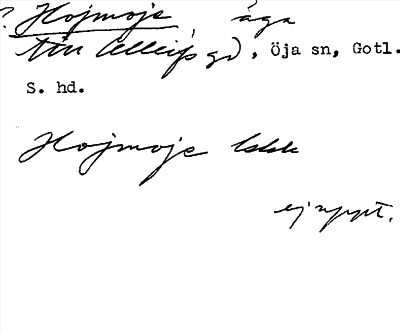 ? Hojmoje äga
till Alleifs gd, Öja sn, Gotl.
S. hd.
Hojmoje
ej uppt.